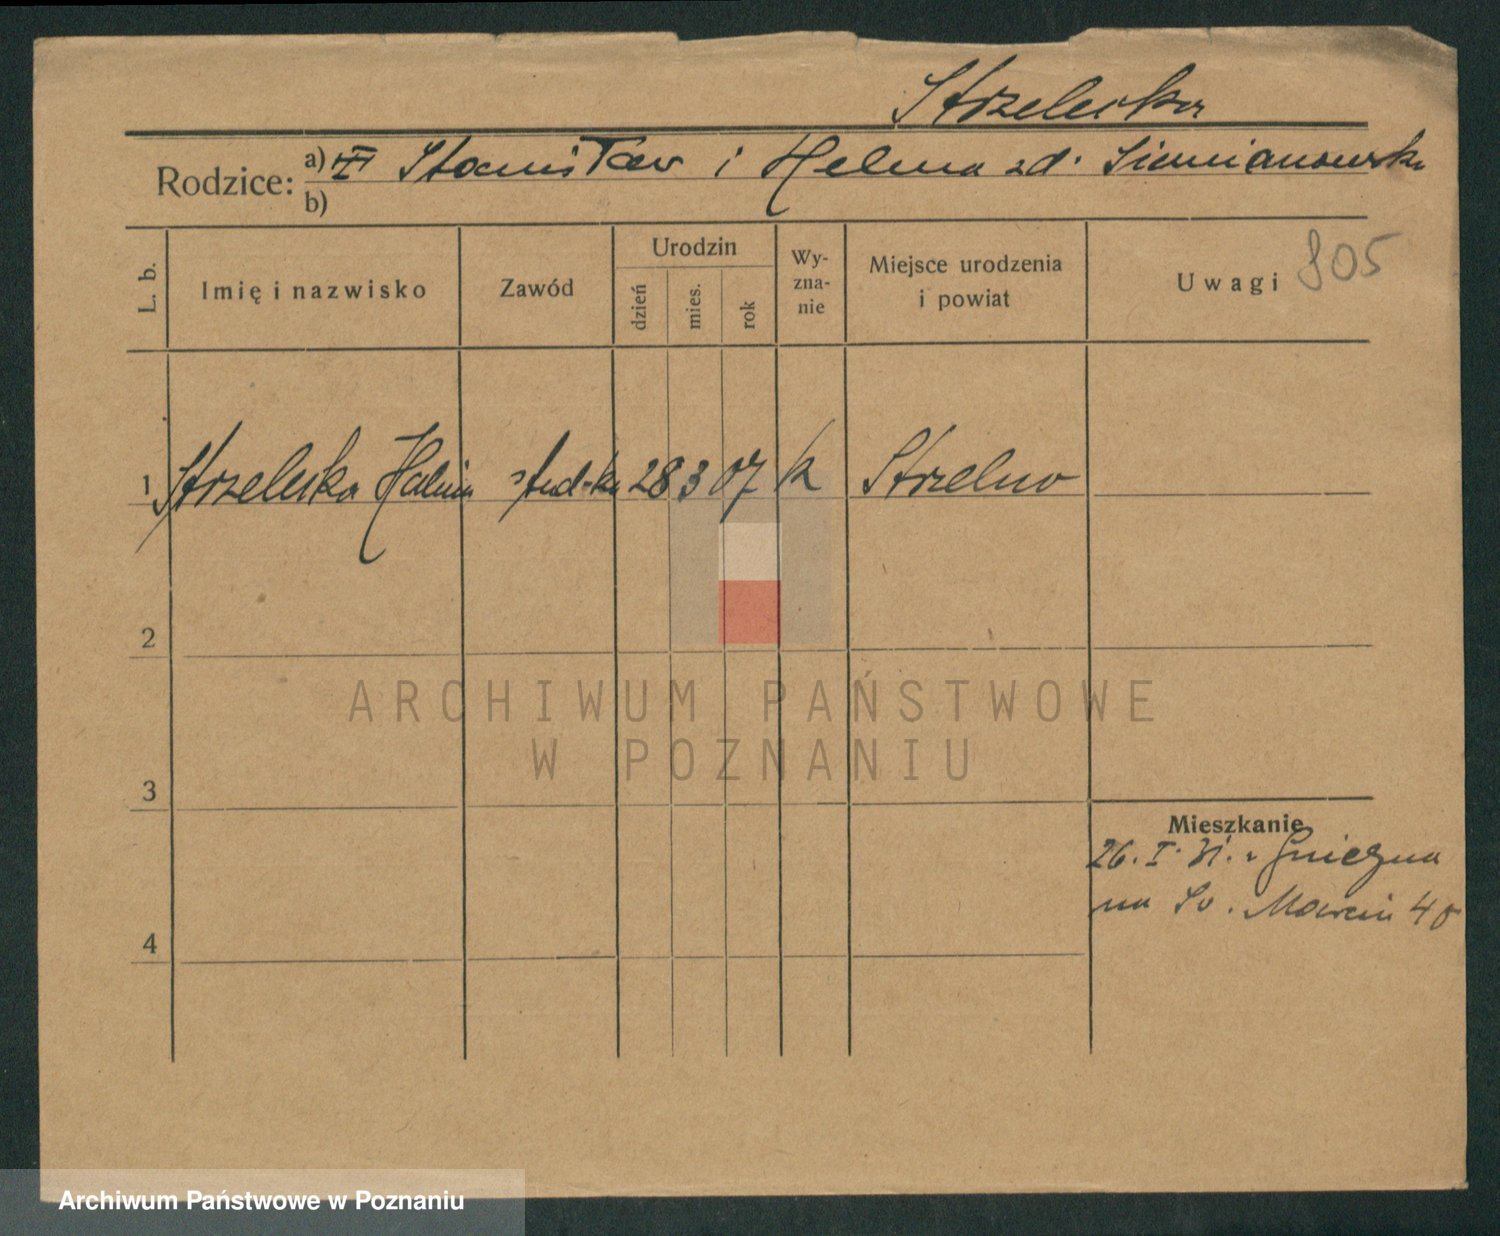 Strzelecka
Rodzice: a) III Stanisław i Helena zd. Siemianowska
b)
L. b.
Imię i nazwisko
Zawód
Urodzin
dzień
mies.
rok
Wy-
zna-
nie
Miejsce urodzenia
i powiat
Uwagi 805
1 Strzelecka Halina stud-ka 28 3 07 k Strzelno
2
ARCHIWUM PAŃSTWOWE
W POZNANIU
3
Mieszkanie
26. I. 31. z Gniezna
na Św. Marcin 40
4
Archiwum Państwowe w Poznaniu